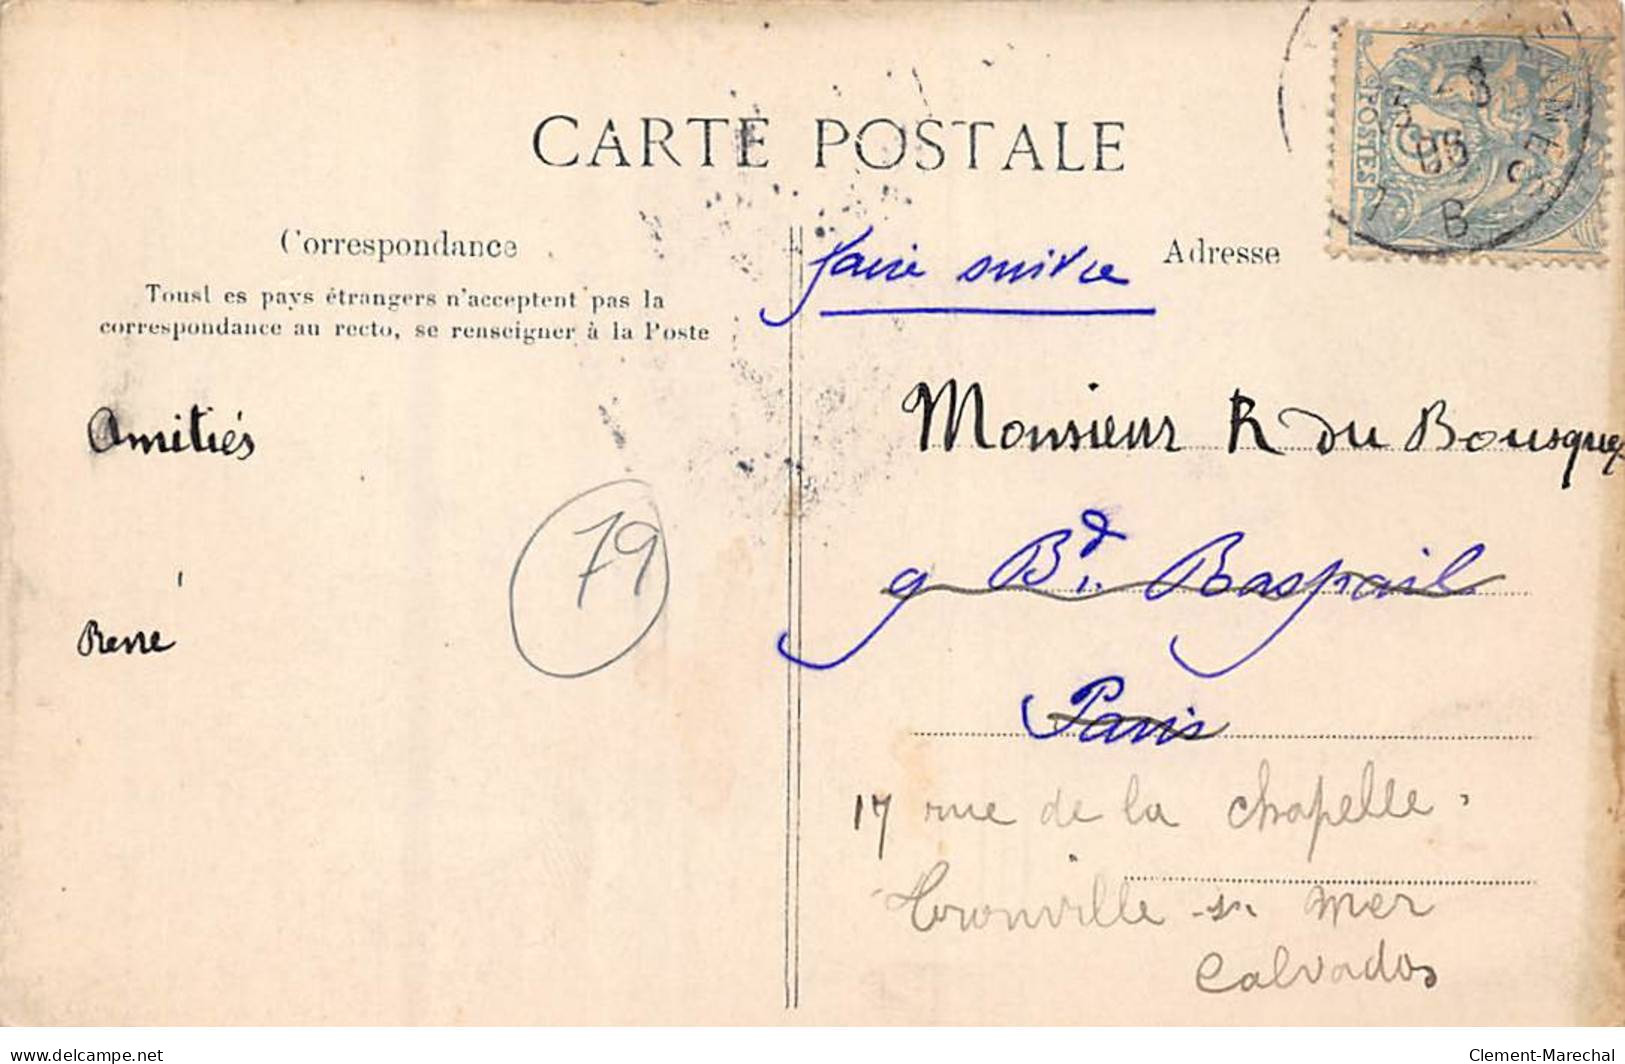 CARTE POSTALE
Correspondance
Tousl es pays étrangers n'acceptent pas la
correspondance au recto, se renseigner à la Poste
Amitiés
René
79
faire suivre
Adresse
POSTES
7 B
Monsieur R du Bousquet
9 Bd Raspail
Paris
17 rue de la chapelle
Tronville sr mer
Calvados
delcampe.net
Clement-Marechal